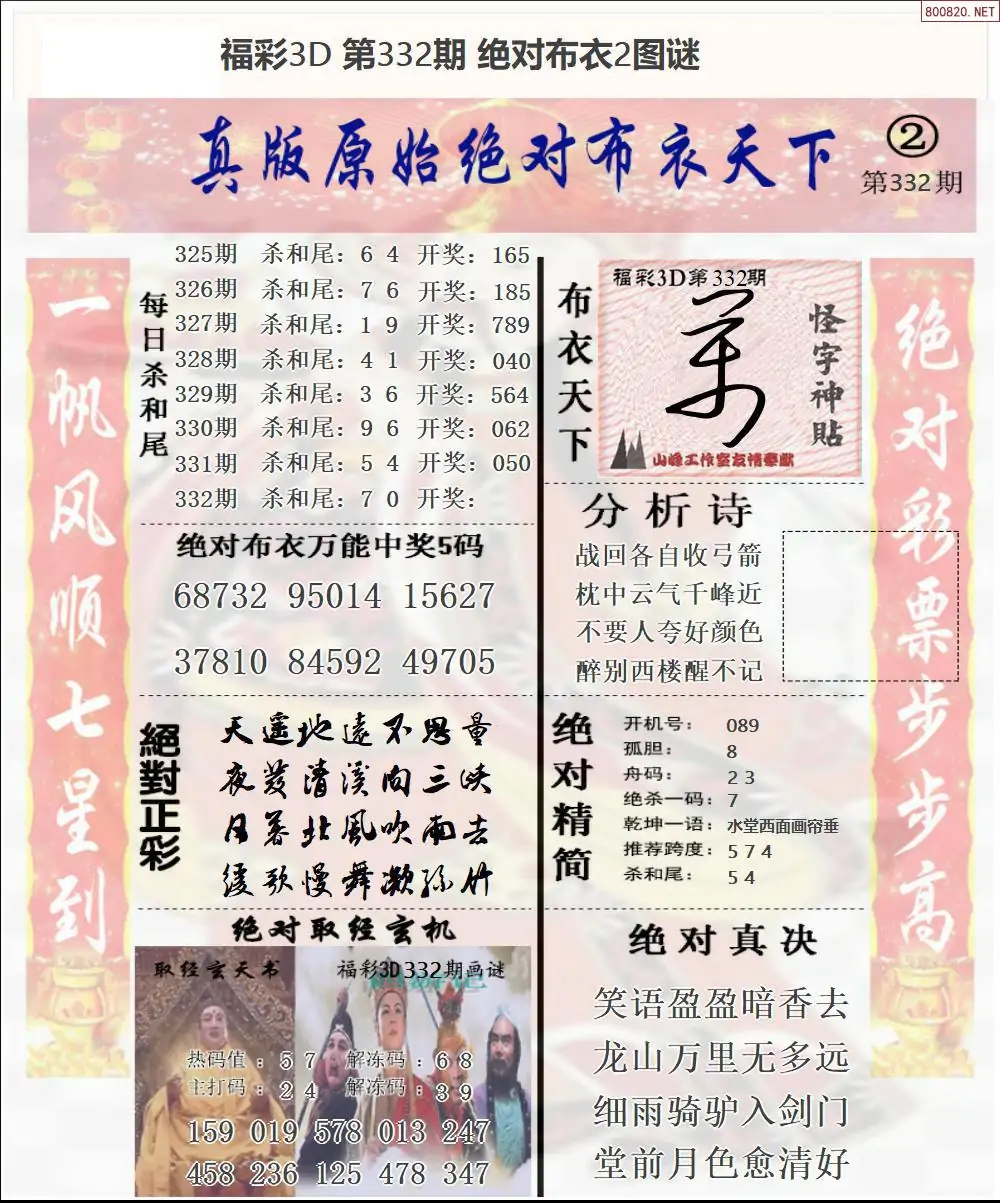 800820.NET
福彩3D 第332期 绝对布衣2图谜
真版原始绝对布衣天下
②
第332期
一帆风顺七星到
每日杀和尾
325期 杀和尾：6 4 开奖：165
326期 杀和尾：7 6 开奖：185
327期 杀和尾：1 9 开奖：789
328期 杀和尾：4 1 开奖：040
329期 杀和尾：3 6 开奖：564
330期 杀和尾：9 6 开奖：062
331期 杀和尾：5 4 开奖：050
332期 杀和尾：7 0 开奖：
绝对布衣万能中奖5码
68732 95014 15627
37810 84592 49705
絕對正彩
天遥地遠不思量
夜发清溪向三峡
日暮北風吹雨去
缓歌慢舞凝孙竹
绝对取经玄机
取经玄天书
福彩3D332期画谜
热码值：5 7 解冻码：6 8
主打码：2 4 解冻码：3 9
159 019 578 013 247
458 236 125 478 347
布衣天下
福彩3D第332期
怪字神貼
山峰工作室友情奉献
分析诗
战回各自收弓箭
枕中云气千峰近
不要人夸好颜色
醉别西楼醒不记
绝对精简
开机号： 089
孤胆： 8
舟码： 2 3
绝杀一码：7
乾坤一语：水堂西面画帘垂
推荐跨度：5 7 4
杀和尾： 5 4
绝对真决
笑语盈盈暗香去
龙山万里无多远
细雨骑驴入剑门
堂前月色愈清好
绝对彩票步步高